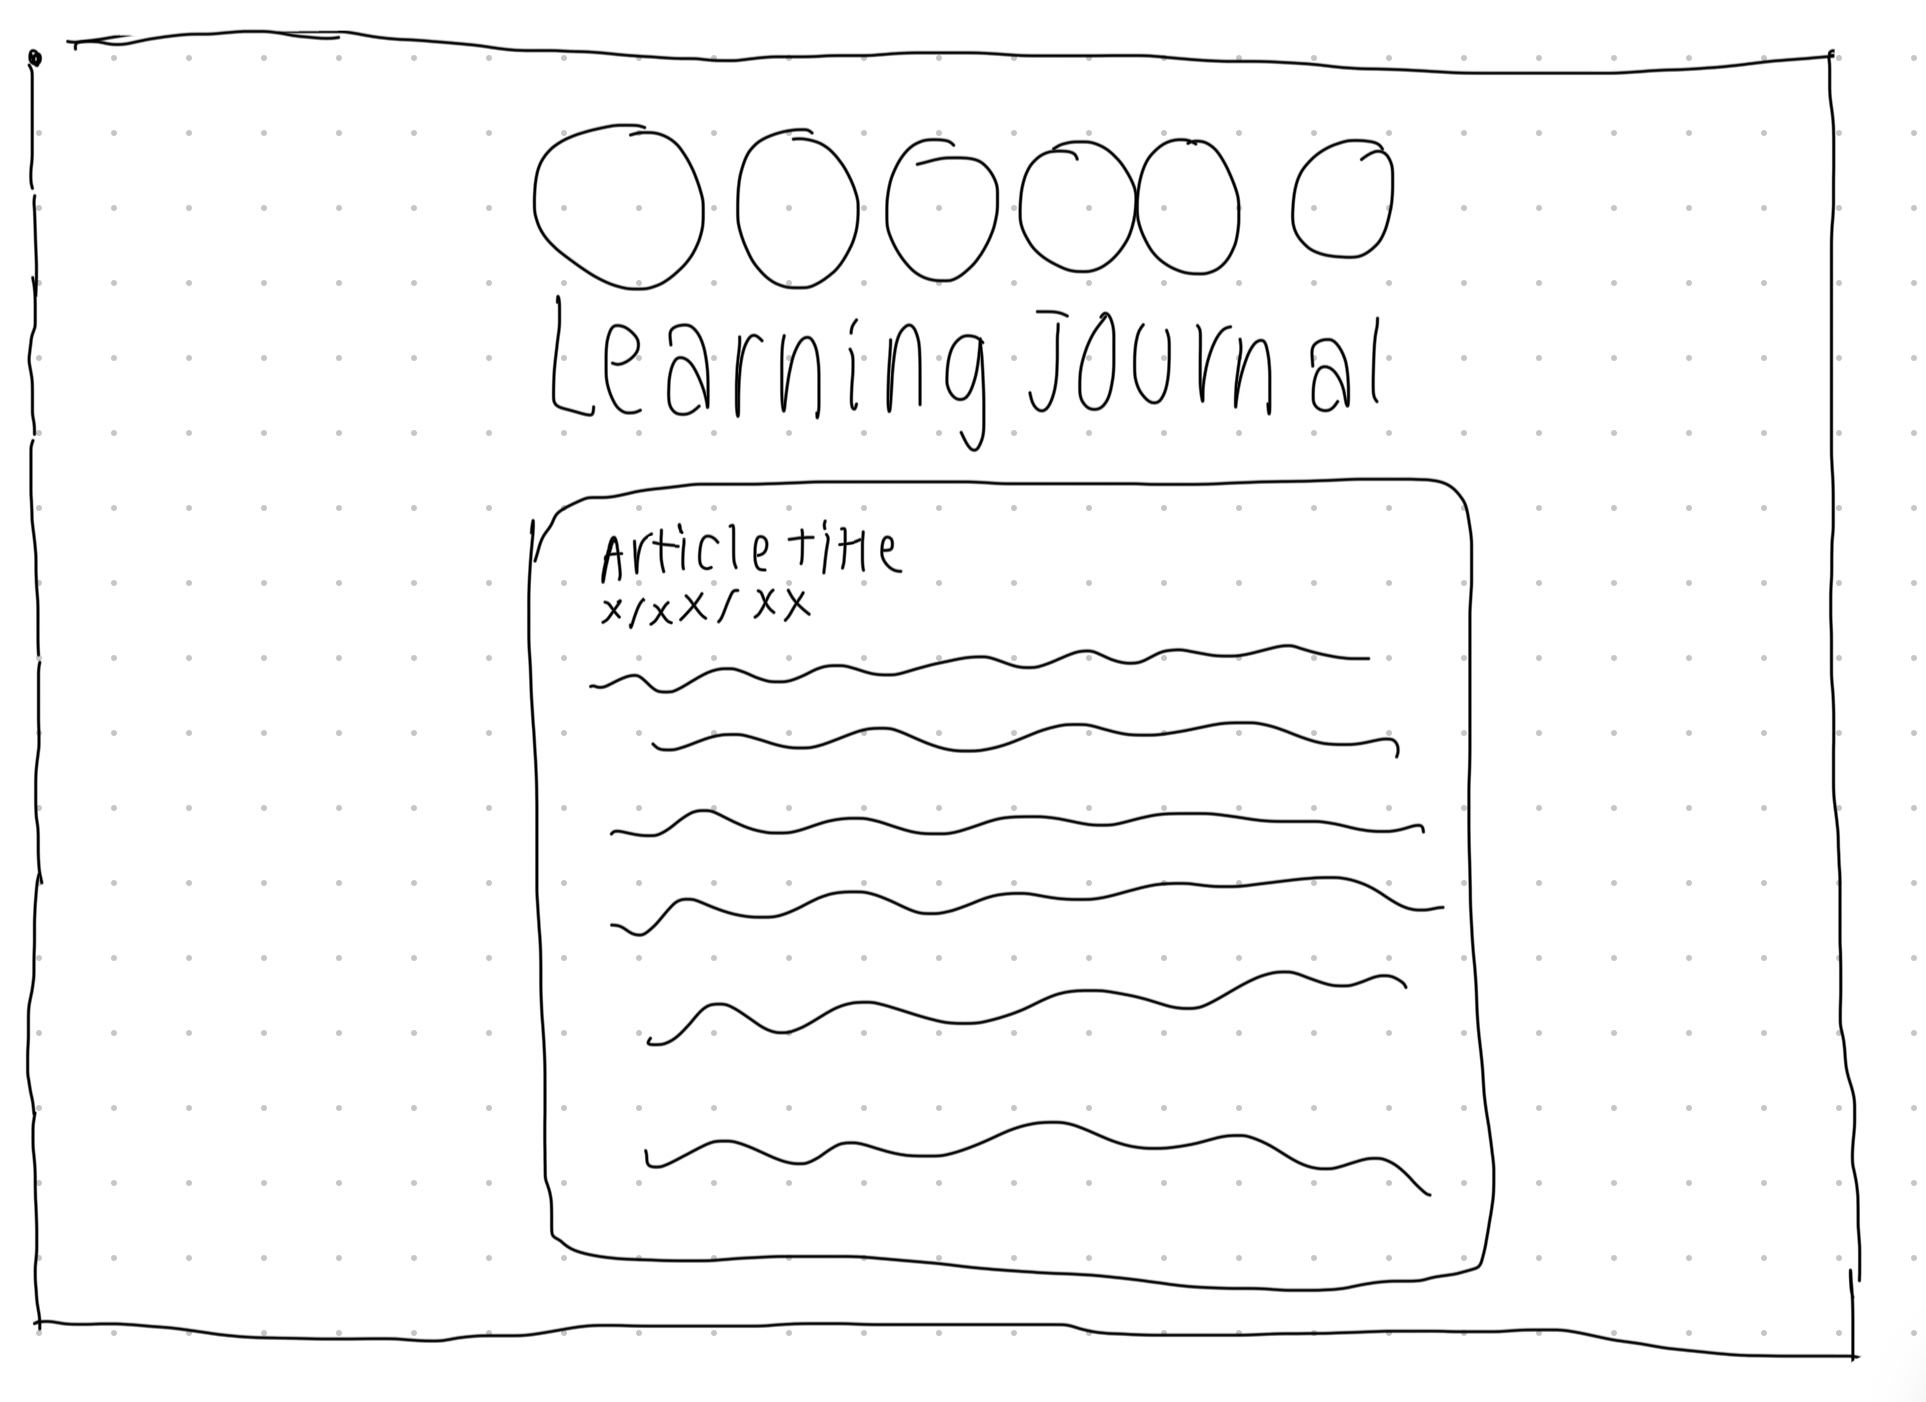 Learning Journal
Article title
x/xx/xx